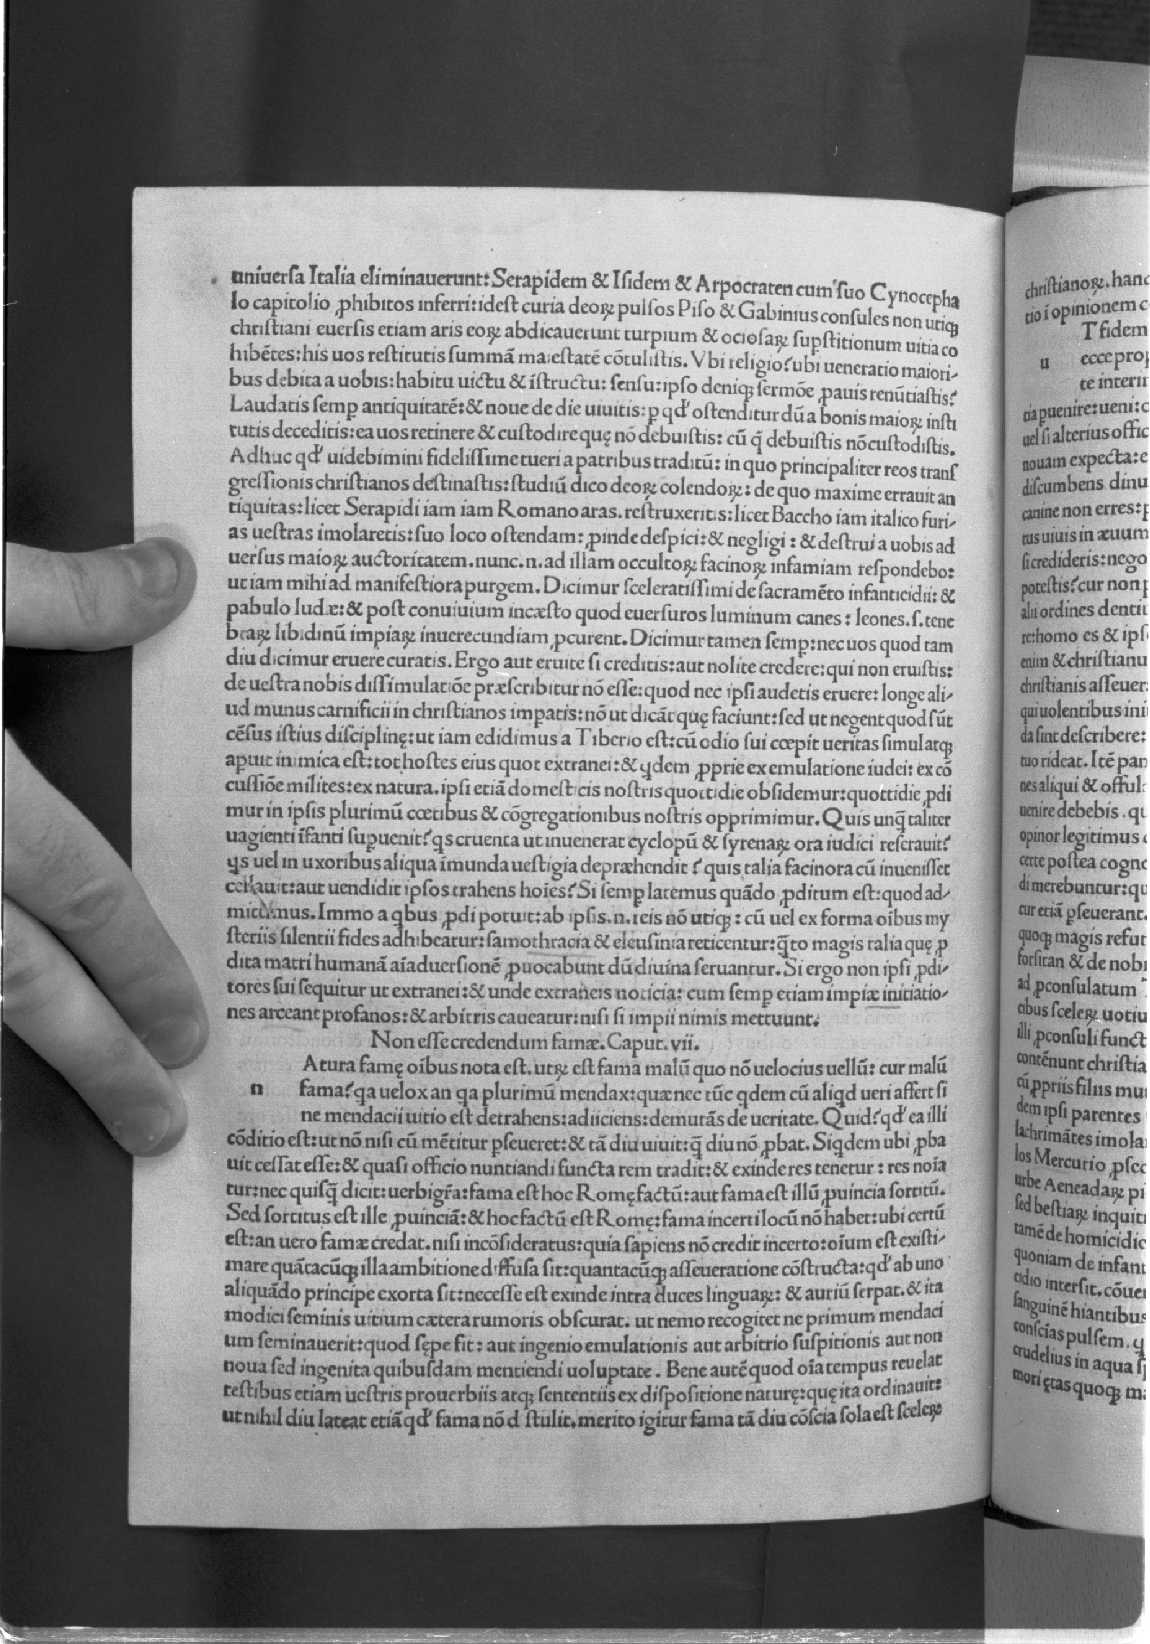 uniuerſa Italia eliminauerunt: Serapidem & Iſidem & Arpocraten cum ſuo Cynocepha
lo capitolio ꝓhibitos inferri: ideſt curia deoꝝ pulſos Piſo & Gabinius conſules non utiqꝫ
chriſtiani euerſis etiam aris eoꝝ abdicauerunt turpium & ocioſaꝝ ſupſtitionum uitia co
hibētes: his uos reſtitutis ſummā maieſtatē cōtuliſtis. Vbi religio? ubi ueneratio maiori⸗
bus debita a uobis: habitu uictu & iſtructu: ſenſu: ipſo deniqꝫ ſermōe ꝓauis renūtiaſtis?
Laudatis ſemꝑ antiquitatē: & noue de die uiuitis: ꝑ qd' oſtenditur dū a bonis maioꝝ inſti
tutis deceditis: ea uos retinere & cuſtodire quę nō debuiſtis: cū q̄ debuiſtis nō cuſtodiſtis.
Adhuc qd' uidebimini fideliſſime tueri a patribus traditū: in quo principaliter reos tranſ
greſſionis chriſtianos deſtinaſtis: ſtudiū dico deoꝝ colendoꝝ: de quo maxime errauit an
tiquitas: licet Serapidi iam iam Romano aras. reſtruxeritis: licet Baccho iam italico furi⸗
as ueſtras imolaretis: ſuo loco oſtendam: ꝓinde deſpici: & negligi: & deſtrui a uobis ad
uerſus maioꝝ auctoritatem. nunc. n. ad illam occultoꝝ facinoꝝ infamiam reſpondebo:
ut iam mihi ad manifeſtiora purgem. Dicimur ſceleratiſſimi de ſacramēto infanticidii: &
pabulo Iudæ: & poſt conuiuium incæſto quod euerſuros luminum canes: leones. ſ. tene
braꝝ libidinū impiaꝝ inuerecundiam ꝓcurent. Dicimur tamen ſemꝑ: nec uos quod tam
diu dicimur eruere curatis. Ergo aut eruite ſi creditis: aut nolite credere: qui non eruiſtis:
de ueſtra nobis diſſimulatiōe præſcribitur nō eſſe: quod nec ipſi audetis eruere: longe ali⸗
ud munus carnificii in chriſtianos impatis: nō ut dicāt quę faciunt: ſed ut negent quod ſūt
cēſus iſtius diſciplinę: ut iam edidimus a Tiberio eſt: cū odio ſui cœpit ueritas ſimulatqꝫ
apuit inimica eſt: tot hoſtes eius quot extranei: & qdem ꝓprie ex emulatione iudei: ex cō
cuſſiōe milites: ex natura. ipſi etiā domeſticis noſtris quottidie obſidemur: quottidie ꝓdi
mur in ipſis plurimū cœtibus & cōgregationibus noſtris opprimimur. Quis unq̄ taliter
uagienti īfanti ſupuenit? qs cruenta ut inuenerat cyclopū & ſyrenaꝝ ora iudici reſerauit?
qs uel in uxoribus aliqua īmunda ueſtigia depræhendit? quis talia facinora cū inueniſſet
cellauit: aut uendidit ipſos trahens hoīes? Si ſemꝑ latemus quādo ꝓditum eſt: quod ad⸗
mittimus. Immo a qbus ꝓdi potuit: ab ipſis. n. reis nō utiqꝫ: cū uel ex forma oībus my
ſteriis ſilentii fides adhibeatur: ſamothracia & eleuſinia reticentur: q̄to magis talia quę ꝓ
dita matri humanā aīaduerſionē ꝓuocabunt dū diuina ſeruantur. Si ergo non ipſi ꝓdi⸗
tores ſui ſequitur ut extranei: & unde extraneis noticia: cum ſemꝑ etiam impiæ initiatio⸗
nes arceant profanos: & arbitris caueatur: niſi ſi impii nimis mettuunt.
Non eſſe credendum famæ. Caput. vii.
Atura famę oībus nota eſt. utꝝ eſt fama malū quo nō uelocius uellū: cur malū
n fama? qa uelox an qa plurimū mendax: quæ nec tūc qdem cū aliqd ueri affert ſi
ne mendacii uitio eſt detrahens: adiiciens: demurās de ueritate. Quid? qd' ea illi
cōditio eſt: ut nō niſi cū mētitur ꝑſeueret: & tā diu uiuit: q̄ diu nō ꝓbat. Siqdem ubi ꝓba
uit ceſſat eſſe: & quaſi officio nuntiandi functa rem tradit: & exinde res tenetur: res noīa
tur: nec quiſq̄ dicit: uerbigr̄a: fama eſt hoc Romę factū: aut fama eſt illū ꝓuincia ſortitū.
Sed ſortitus eſt ille ꝓuinciā: & hoc factū eſt Romę: fama incerti locū nō habet: ubi certū
eſt: an uero famæ credat. niſi incōſideratus: quia ſapiens nō credit incerto: oīum eſt exiſti⸗
mare quātacūqꝫ illa ambitione diffuſa ſit: quantacūqꝫ aſſeueratione cōſtructa: qd' ab uno
aliquādo principe exorta ſit: neceſſe eſt exinde intra duces linguaꝝ: & auriū ſerpat. & ita
modici ſeminis uitium cætera rumoris obſcurat. ut nemo recogitet ne primum mendaci
um ſeminauerit: quod ſępe fit: aut ingenio emulationis aut arbitrio ſuſpitionis aut non
noua ſed ingenita quibuſdam mentiendi uoluptate. Bene autē quod oīa tempus reuelat
teſtibus etiam ueſtris prouerbiis atqꝫ ſententiis ex diſpoſitione naturę: quę ita ordinauit:
ut nihil diu lateat etiā qd' fama nō d ſtulit. merito igitur fama tā diu cōſcia ſola eſt ſceleꝝ
chriſtianoꝝ. hanc
tio ī opinionem
T fidem
u ecce
te
cia puenire: ueni:
uel ſi alterius offic
nouam expecta:
diſcumbens
canine non erres:
tus uiuis in æuum
ſi credideris: nego
poteſtis? cur non
alii ordines
homo es & ipſ
enim & chriſtianu
chriſtianis
qui uolentibus ini
da ſint deſcribere:
tuo rideat. Itē pan
nes aliqui & offul
uenire debebis.
opinor legitimus
certe poſtea
di merebuntur:
cur etiā ꝑſeuerant.
quoqꝫ magis refut
forſitan & de nobi
ad ꝓconſulatum
cibus ſceleꝝ uotiu
illi ꝓconſuli funct
contēnunt chriſtia
cū ꝓpriis filiis mu
dem ipſi parentes
lachrimātes imola
los Mercurio
urbe Aeneadaꝝ pi
ſed beſtiaꝝ inquit
tamē de homicidio
quoniam de infant
cidio interſit.
ſanguinē hiantibus
conſcias pulſem.
crudelius in aqua
mori ętas quoqꝫ